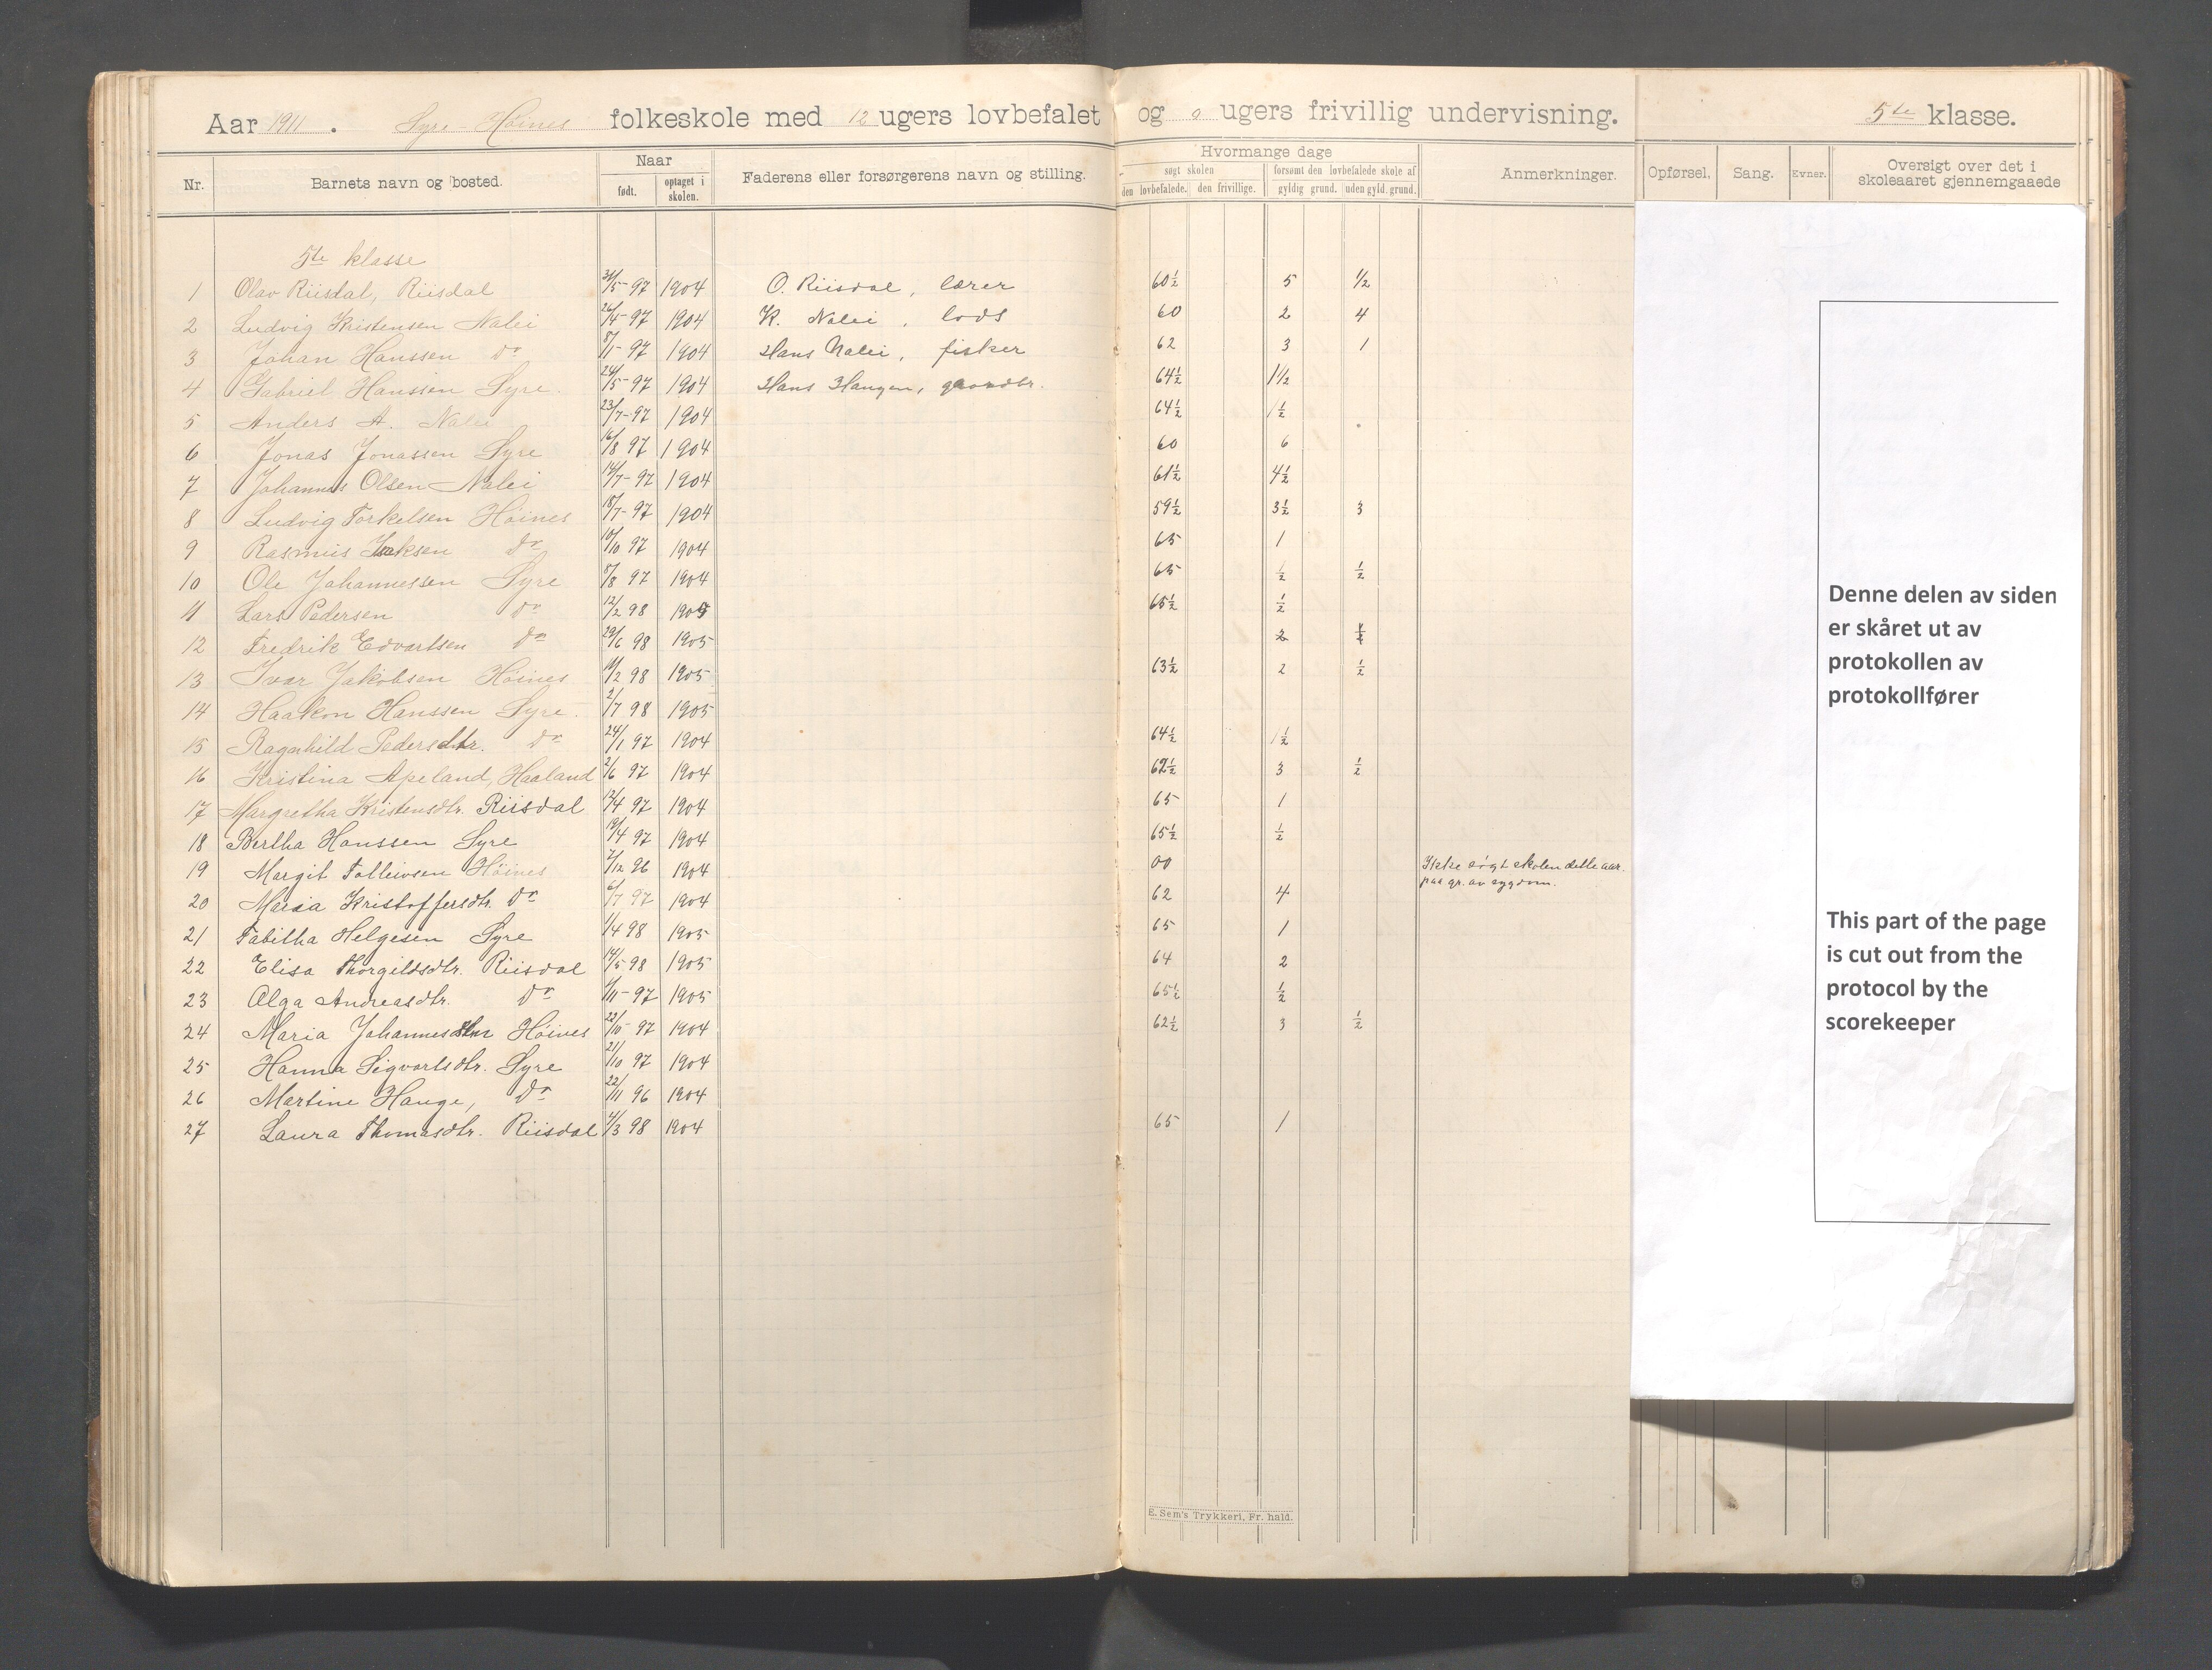 Aar 1911. Syre-Høines folkeskole med 12 ugers lovbefalet og 0 ugers frivillig undervisning. 5te klasse.
Nr. Barnets navn og bosted. Naar født. optaget i skolen. Faderens eller forsørgerens navn og stilling. Hvormange dage søgt skolen den lovbefalede. den frivillige. forsømt den lovbefalede skole af gyldig grund. uden gyld. grund. Anmerkninger. Opførsel. Sang. Evner. Oversigt over det i skoleaaret gjennemgaaede
5te klasse
1 Olav Riisdal, Riisdal 31/5-97 1904 O. Riisdal, lærer 60½ 5 ½
2 Ludvig Kristensen Nalei 26/4-97 1904 K. Nalei, lods 60 2 4
3 Johan Hanssen do 8/1-97 1904 Hans Nalei, fisker 62 3 1
4 Gabriel Hanssen Syre. 24/5-97 1904 Hans Haugen, gaardbr. 64½ 1½
5 Anders A. Nalei 23/7-97 1904 64½ 1½
6 Jonas Jonassen Syre 16/8 97 1904 60 6
7 Johannes Olsen Nalei 14/7-97 1904 61½ 4½
8 Ludvig Torkelsen Høines 18/7-97 1904 59½ 3½ 3
9 Rasmus Isaksen do 10/10 97 1904 65 1
10 Ole Johannessen Syre 8/8 97 1904 65 ½ ½
11 Lars Pedersen do 12/2 98 1905 65½ ½
12 Fredrik Edvartsen do 29/6 98 1905 2 ½
13 Ivar Jakobsen Høines 14/2 98 1905 63½ 2 ½
14 Haakon Hanssen Syre. 2/7 98 1905
15 Ragnhild Pedersdtr. do 24/1 97 1904 64½ 1½
16 Kristina Apeland, Haaland 2/6 97 1904 62½ 3 ½
17 Margretha Kristensdtr. Riisdal 12/4 97 1904 65 1
18 Bertha Hanssen Syre 19/4 97 1904 65½ ½
19 Margit Tolleivsen Høines 7/12 96 1904 00 Ikke søgt skolen dette aar.
paa gr. av sygdom.
20 Maria Kristoffersdtr. do 6/7 97 1904 62 4
21 Tabitha Helgesen Syre 1/4 98 1905 65 1
22 Elisa Thorgildsdtr. Riisdal 14/5 98 1905 64 2
23 Olga Andreasdtr. do 6/11-97 1905 65½ ½
24 Maria Johannesdtr Høines 22/10-97 1904 62½ 3 ½
25 Hanna Sigvartsdtr. Syre 21/10 97 1904
26 Martine Hauge, do 22/11 96 1904
27 Laura Thomasdtr. Riisdal 4/3 98 1904 65 1
E. Sem's Trykkeri, Fr. hald.
Denne delen av siden
er skåret ut av
protokollen av
protokollfører
This part of the page
is cut out from the
protocol by the
scorekeeper